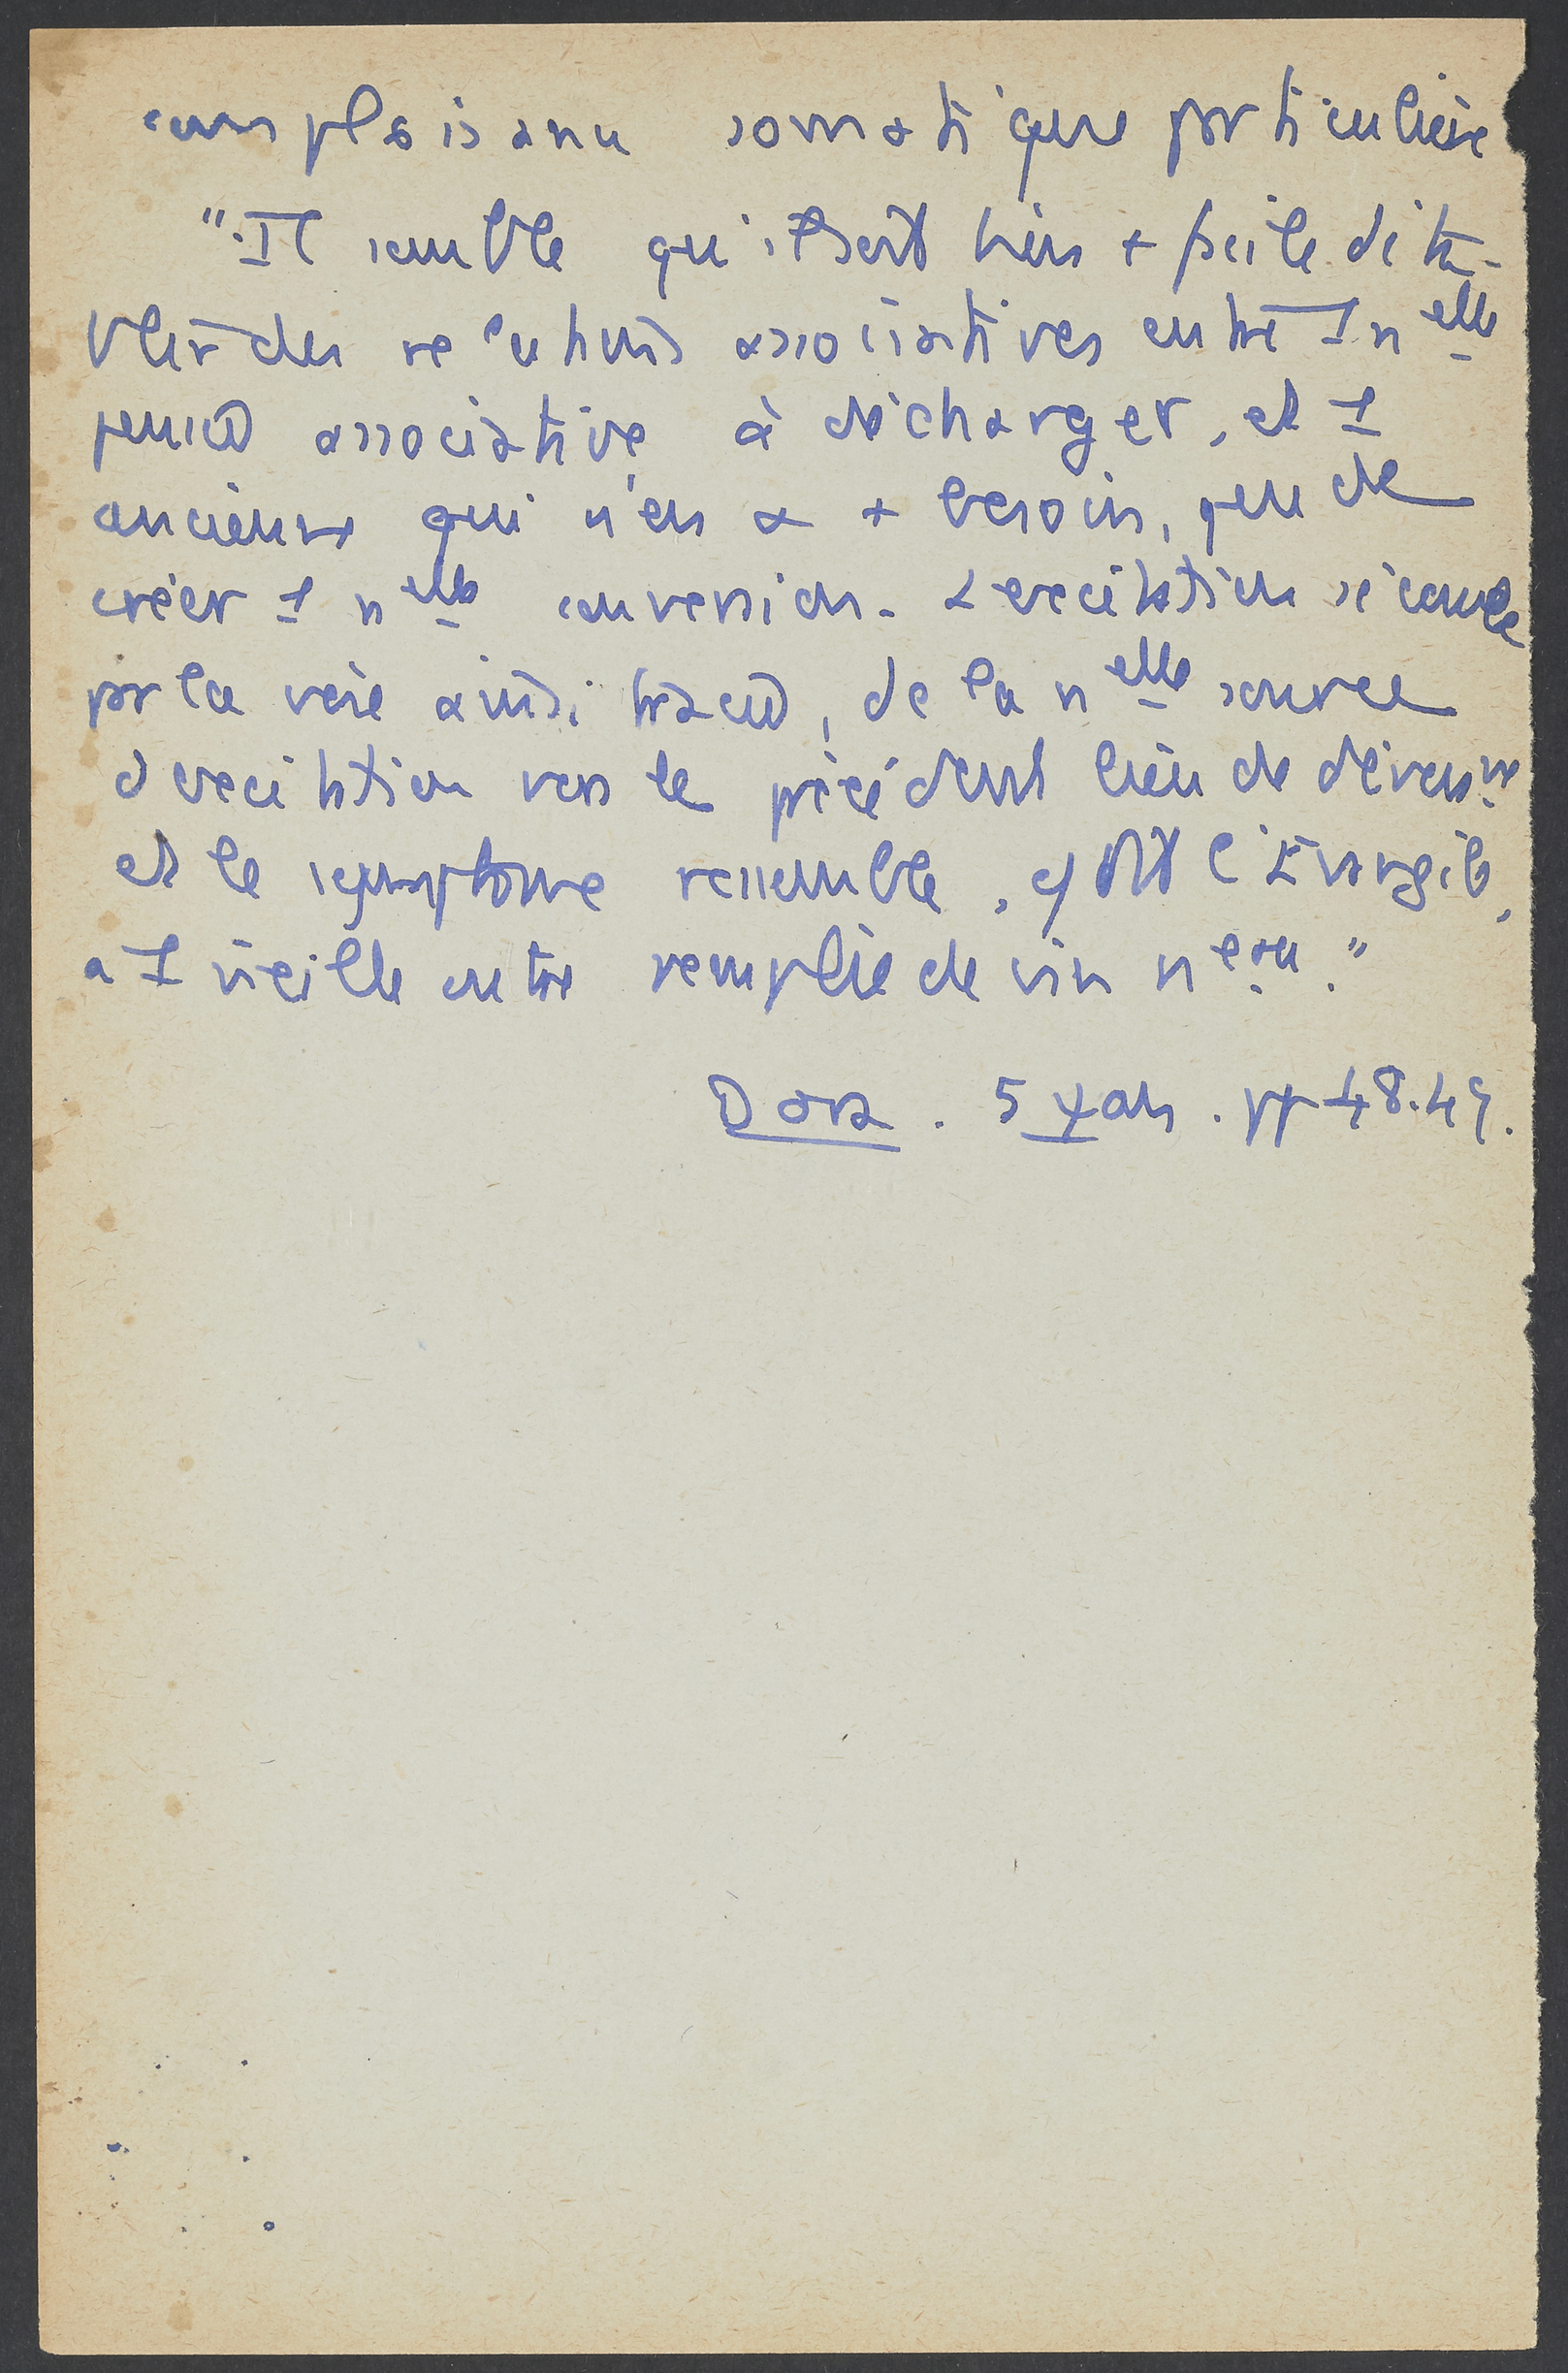 complaisance somatique particulière
"Il semble qu'il soit bien + facile d'éta-
blir des relations associatives entre 1 nelle
pensée associative à décharger, et 1
ancienne qui n'en a + besoin, que de
créer 1 nelle conversion. L'excitation s'écoule
par la voie ainsi tracée, de la nelle source
d'excitation vers le précédent lieu de déversnt
et le symptôme ressemble, dit l'Evangile,
a 1 vieille outre remplie de vin neau."
Dora. 5 ψans. pp 48.49.